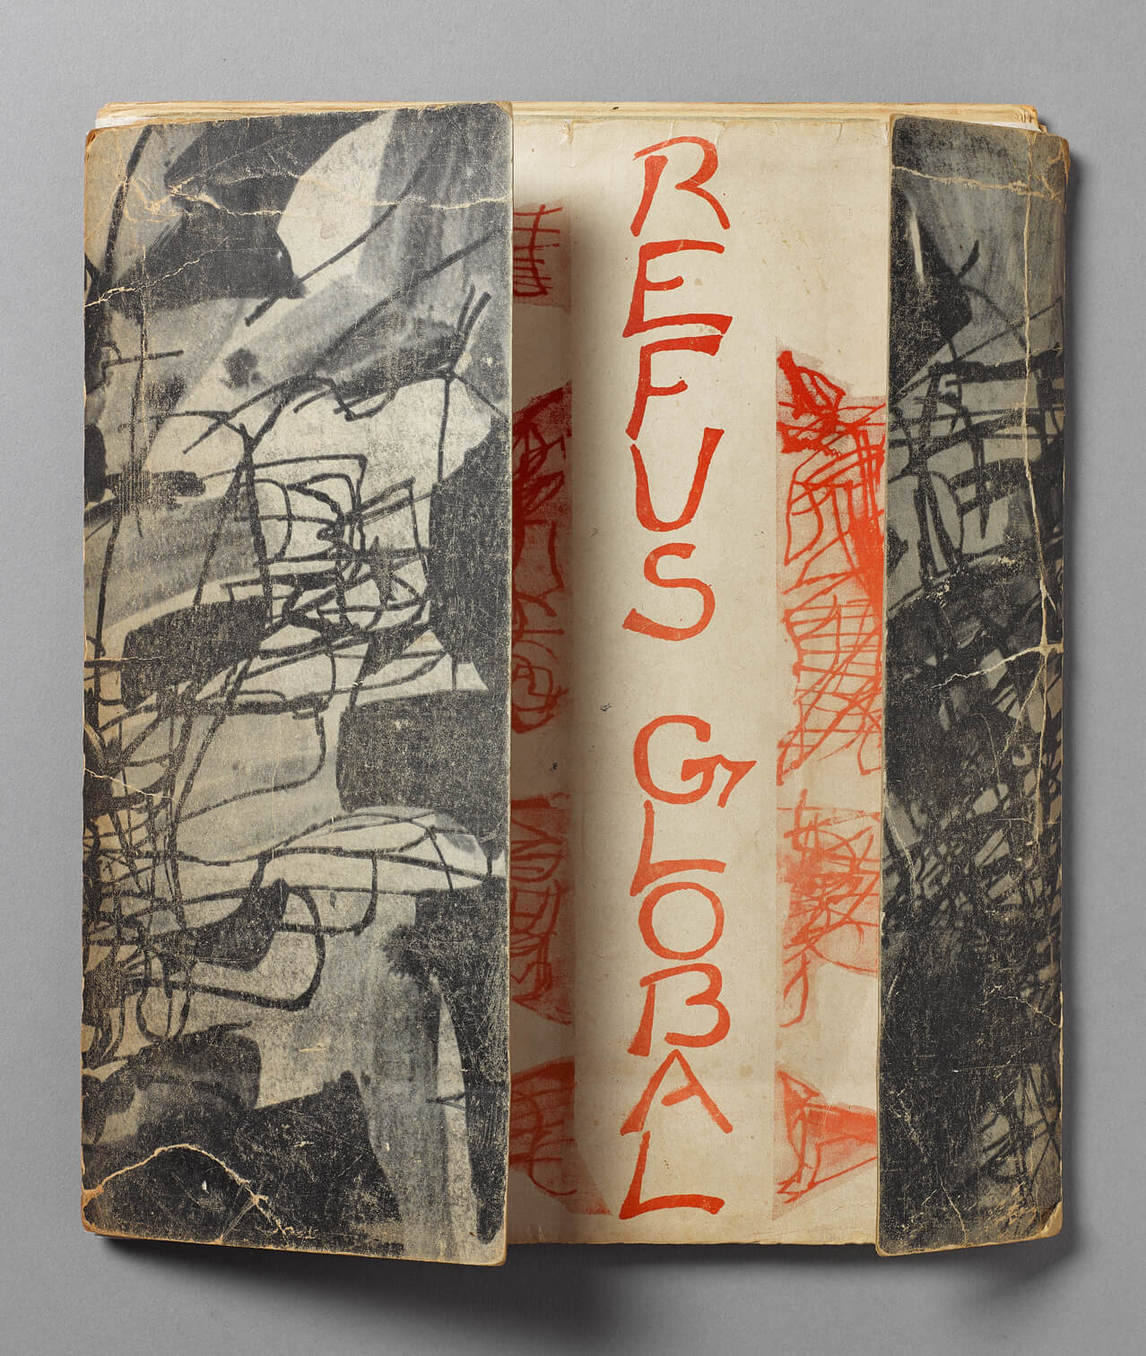 REFUS GLOBAL